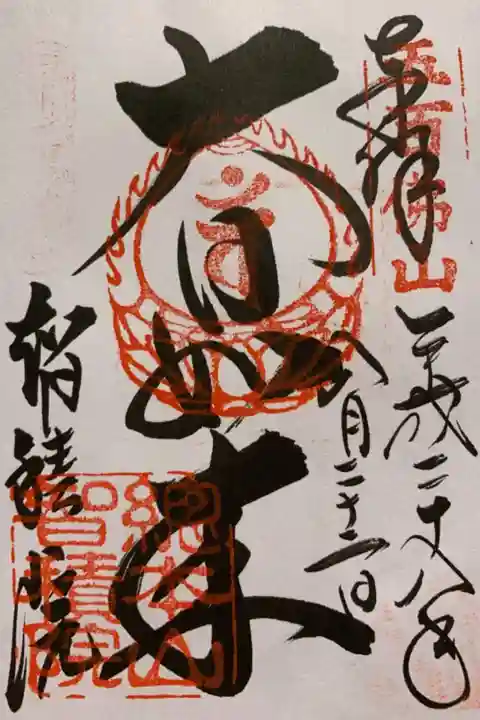 奉拝
五百佛山
平成二十八年
八月二十二日
大日如来
智積院
総本山
智積院